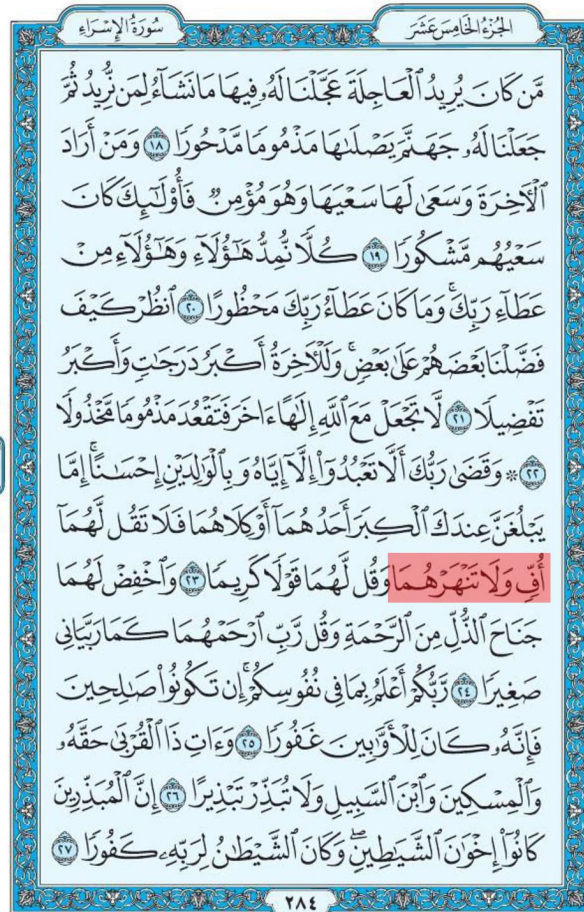 سُورَةُ الإِسْرَاءِ
الجُزْءُ الخَامِسَ عَشَرَ
مَّن كَانَ يُرِيدُ ٱلْعَاجِلَةَ عَجَّلْنَا لَهُۥ فِيهَا مَا نَشَآءُ لِمَن نُّرِيدُ ثُمَّ
جَعَلْنَا لَهُۥ جَهَنَّمَ يَصْلَىٰهَا مَذْمُومًا مَّدْحُورًا ١٨ وَمَنْ أَرَادَ
ٱلْأَخِرَةَ وَسَعَىٰ لَهَا سَعْيَهَا وَهُوَ مُؤْمِنٌ فَأُو۟لَٰٓئِكَ كَانَ
سَعْيُهُم مَّشْكُورًا ١٩ كُلًّا نُّمِدُّ هَٰٓؤُلَآءِ وَهَٰٓؤُلَآءِ مِنْ
عَطَآءِ رَبِّكَ ۚ وَمَا كَانَ عَطَآءُ رَبِّكَ مَحْظُورًا ٢٠ ٱنظُرْ كَيْفَ
فَضَّلْنَا بَعْضَهُمْ عَلَىٰ بَعْضٍ ۚ وَلَلْأَخِرَةُ أَكْبَرُ دَرَجَٰتٍ وَأَكْبَرُ
تَفْضِيلًا ٢١ لَّا تَجْعَلْ مَعَ ٱللَّهِ إِلَٰهًا ءَاخَرَ فَتَقْعُدَ مَذْمُومًا مَّخْذُولًا
٢٢ ۞ وَقَضَىٰ رَبُّكَ أَلَّا تَعْبُدُوٓا۟ إِلَّآ إِيَّاهُ وَبِٱلْوَٰلِدَيْنِ إِحْسَٰنًا ۚ إِمَّا
يَبْلُغَنَّ عِندَكَ ٱلْكِبَرَ أَحَدُهُمَآ أَوْ كِلَاهُمَا فَلَا تَقُل لَّهُمَآ
أُفٍّ وَلَا تَنْهَرْهُمَا وَقُل لَّهُمَا قَوْلًا كَرِيمًا ٢٣ وَٱخْفِضْ لَهُمَا
جَنَاحَ ٱلذُّلِّ مِنَ ٱلرَّحْمَةِ وَقُل رَّبِّ ٱرْحَمْهُمَا كَمَا رَبَّيَانِى
صَغِيرًا ٢٤ رَّبُّكُمْ أَعْلَمُ بِمَا فِى نُفُوسِكُمْ ۚ إِن تَكُونُوا۟ صَٰلِحِينَ
فَإِنَّهُۥ كَانَ لِلْأَوَّٰبِينَ غَفُورًا ٢٥ وَءَاتِ ذَا ٱلْقُرْبَىٰ حَقَّهُۥ
وَٱلْمِسْكِينَ وَٱبْنَ ٱلسَّبِيلِ وَلَا تُبَذِّرْ تَبْذِيرًا ٢٦ إِنَّ ٱلْمُبَذِّرِينَ
كَانُوٓا۟ إِخْوَٰنَ ٱلشَّيَٰطِينِ ۖ وَكَانَ ٱلشَّيْطَٰنُ لِرَبِّهِۦ كَفُورًا ٢٧
٢٨٤